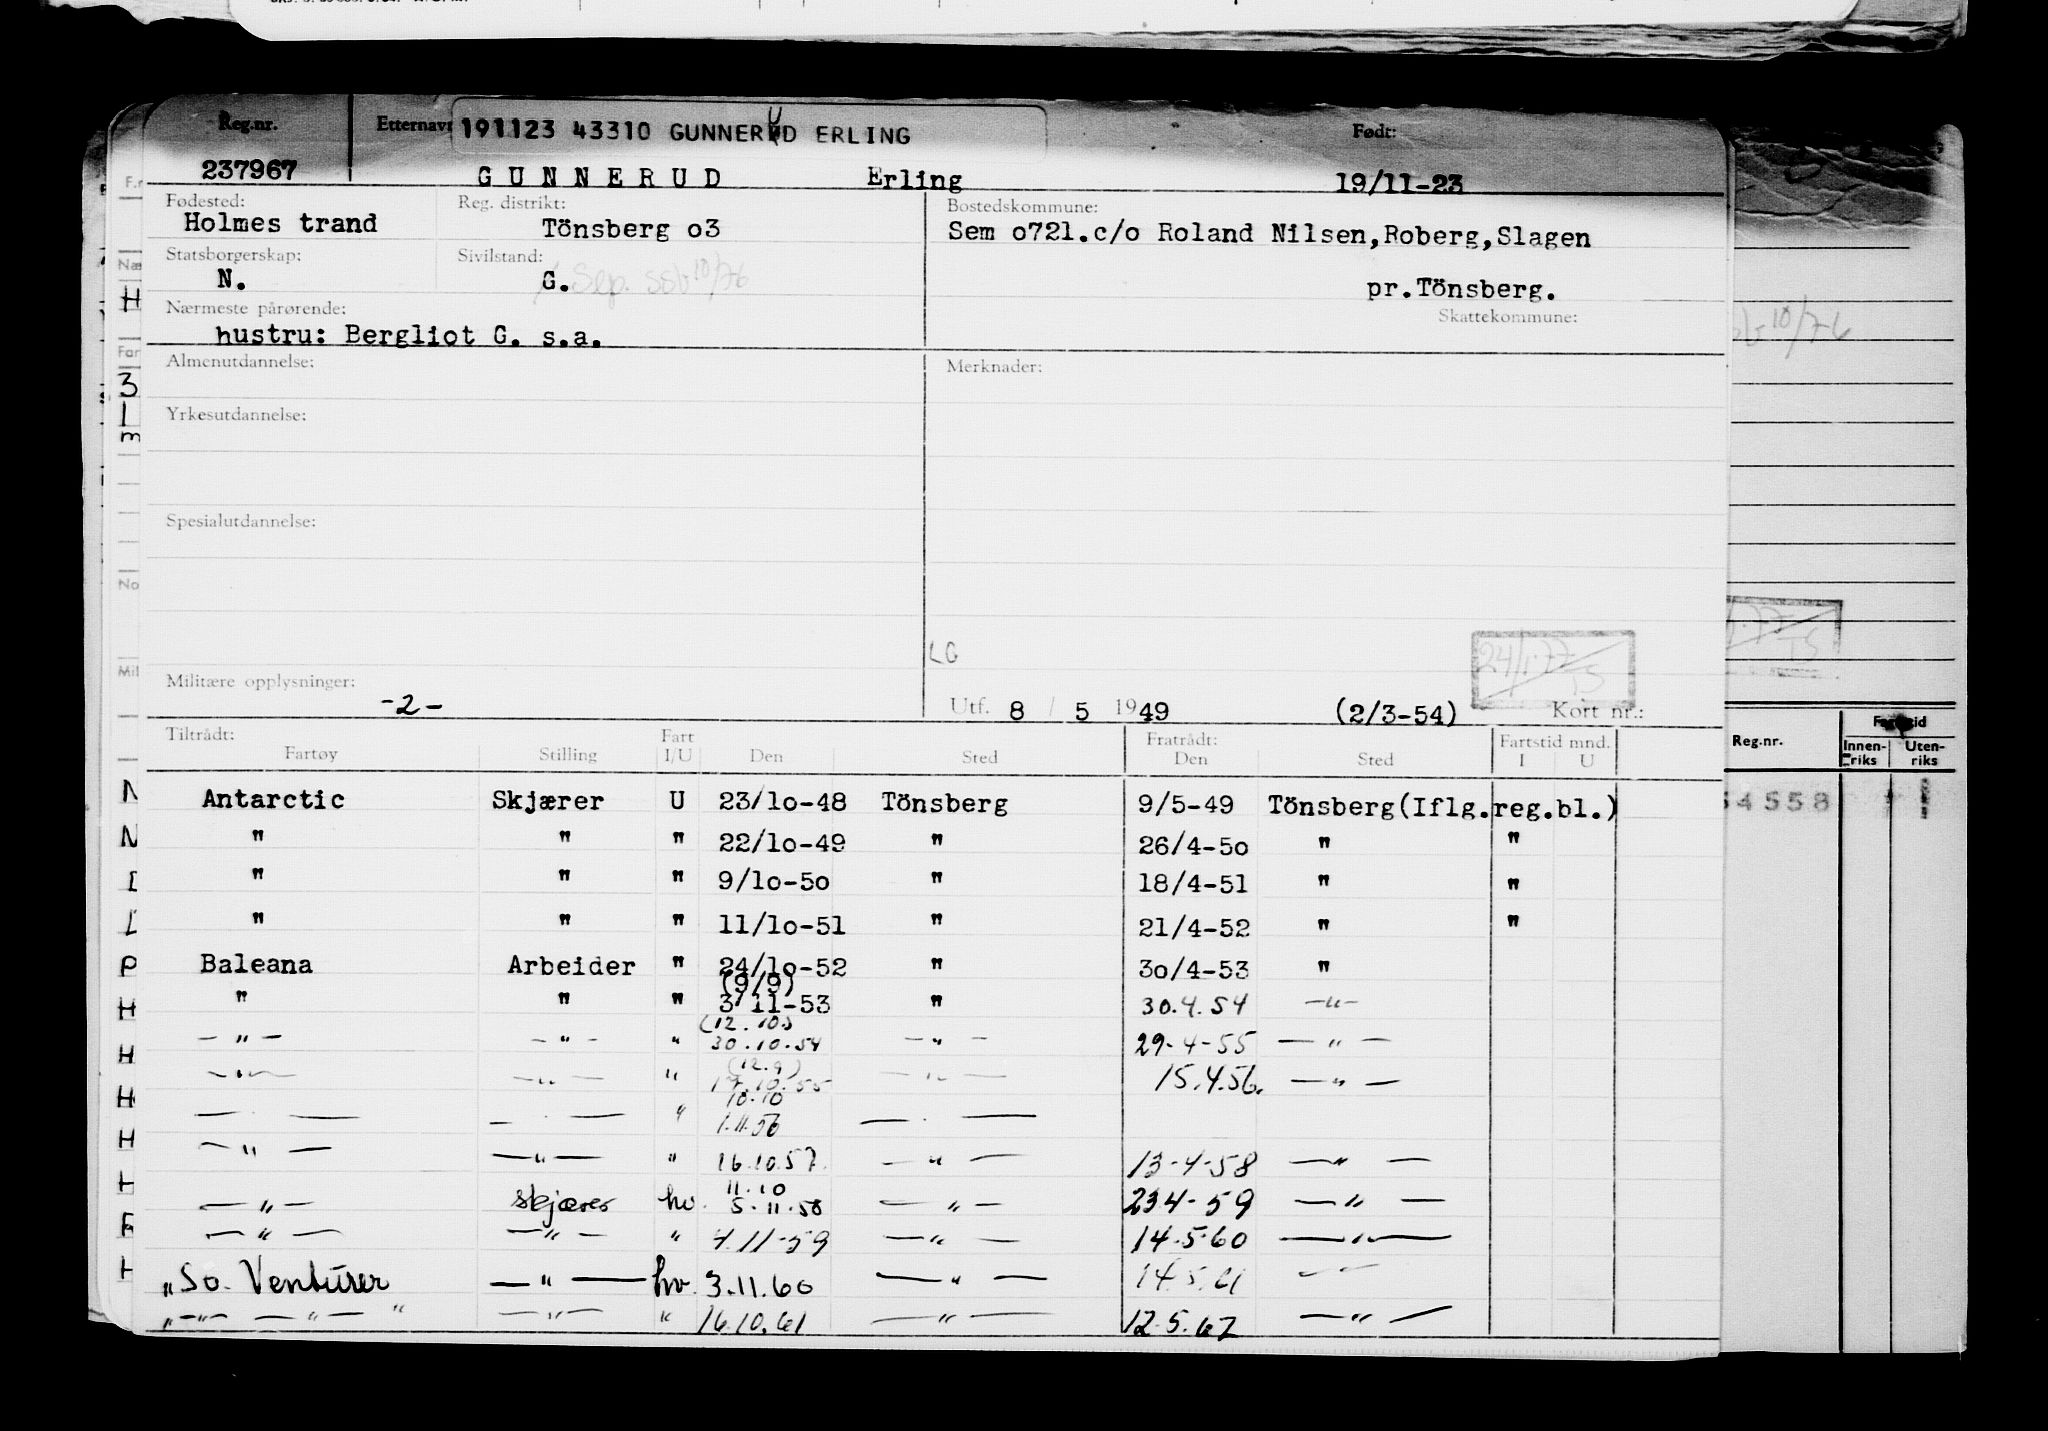 Reg.nr. Etternavn 191123 43310 GUNNERUD ERLING Født:
237967 GUNNERUD Erling 19/11-23
Fødested: Reg. distrikt: Bostedskommune:
Holmes trand Tönsberg o3 Sem o721.c/o Roland Nilsen,Roberg,Slagen
Statsborgerskap: Sivilstand:
N. G. Sep. ssb 10/76 pr.Tönsberg.
Nærmeste pårørende: Skattekommune:
hustru: Bergliot G. s.a.
Almenutdannelse: Merknader:
Yrkesutdannelse:
Spesialutdannelse:
LG
24/1.77 TS
Militære opplysninger:
-2- Utf. 8 / 5 1949 (2/3-54) Kort nr.:
Tiltrådt: Fart Fratrådt: Fartstid mnd.
Fartøy Stilling I/U Den Sted Den Sted I U
Reg.nr. Innen-riks Uten-riks
Antarctic Skjærer U 23/1o-48 Tönsberg 9/5-49 Tönsberg(Iflg.reg.bl.)
4558
" " " 22/1o-49 " 26/4-5o " "
" " " 9/1o-5o " 18/4-51 " "
" " " 11/1o-51 " 21/4-52 " "
Baleana Arbeider " 24/1o-52 " 3o/4-53 "
(9/9)
" " " 3/11-53 " 30.4.54 -"-
(12.10)
-"- -"- " 30.10.54 -"- 29-4-55 -"-
(12.9)
-"- -"- " 17.10.55 -"- 15.4.56. -"-
10.10
-"- -"- " 1.11.56 -"-
-"- -"- " 16.10.57. -"- 13-4-58 -"-
11.10
-"- skjærer hv. 5.11.58 -"- 23.4-59 -"-
-"- -"- " 4.11-59 -"- 14.5.60 -"-
"So. Venturer -"- hv. 3.11.60 -"- 14.5.61 -"-
"-"- -"-" -"- " 16.10.61 -"- 12.5.62 -"-